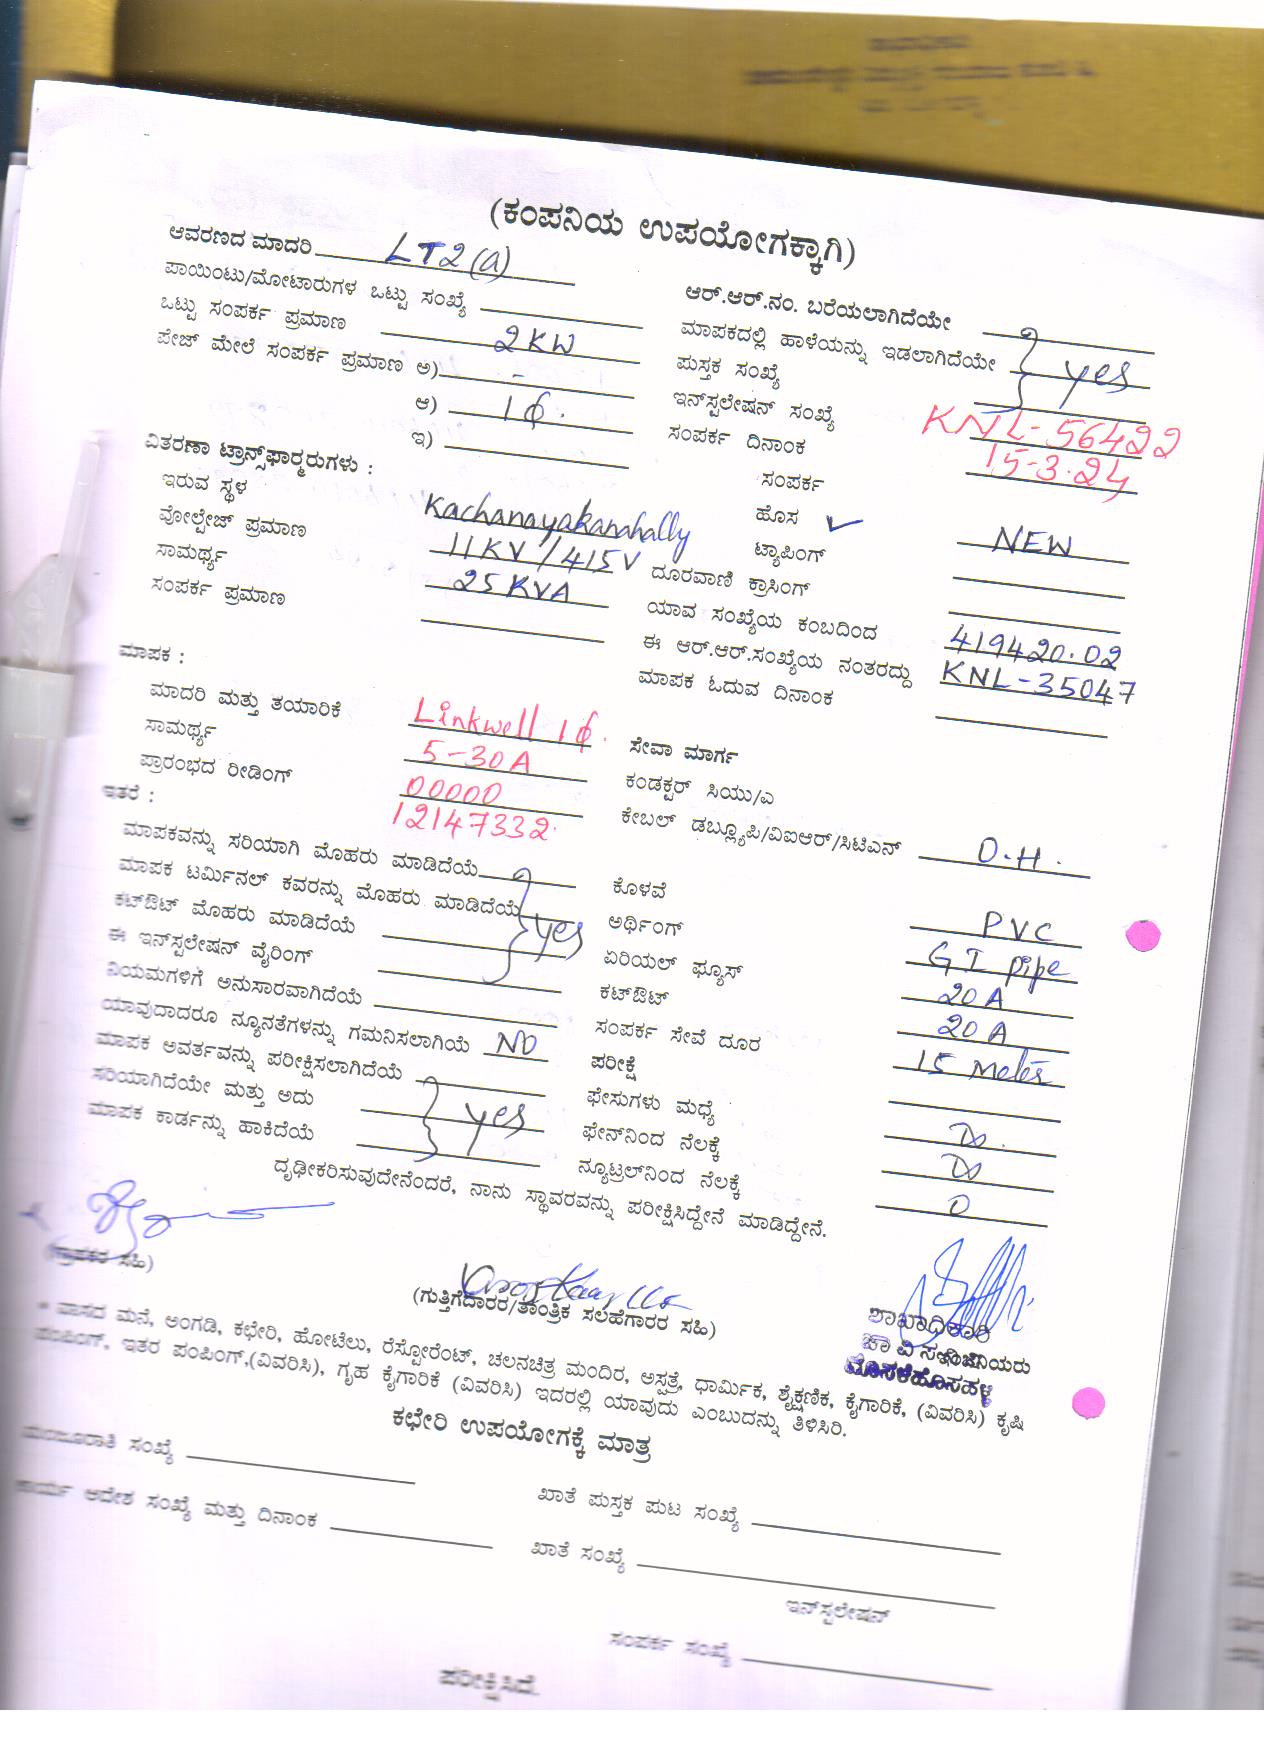 (ಕಂಪನಿಯ ಉಪಯೋಗಕ್ಕಾಗಿ)
ಆವರಣದ ಮಾದರಿ LT2(a)
ಪಾಯಿಂಟು/ಮೋಟಾರುಗಳ ಒಟ್ಟು ಸಂಖ್ಯೆ
ಒಟ್ಟು ಸಂಪರ್ಕ ಪ್ರಮಾಣ 2KW
ಪೇಜ್ ಮೇಲೆ ಸಂಪರ್ಕ ಪ್ರಮಾಣ ಅ) -
ಆ) 1ϕ.
ಇ)
ಆರ್.ಆರ್.ನಂ. ಬರೆಯಲಾಗಿದೆಯೇ
ಮಾಪಕದಲ್ಲಿ ಹಾಳೆಯನ್ನು ಇಡಲಾಗಿದೆಯೇ } yes
ಪುಸ್ತಕ ಸಂಖ್ಯೆ
ಇನ್‌ಸ್ಟಲೇಷನ್ ಸಂಖ್ಯೆ KNL-56422
ಸಂಪರ್ಕ ದಿನಾಂಕ 15-3-24
ವಿತರಣಾ ಟ್ರಾನ್ಸ್‌ಫಾರ್‍ಮರುಗಳು :
ಇರುವ ಸ್ಥಳ Kachanayakanahally
ವೋಲ್ಟೇಜ್ ಪ್ರಮಾಣ 11KV/415V
ಸಾಮರ್ಥ್ಯ 25KVA
ಸಂಪರ್ಕ ಪ್ರಮಾಣ
ಸಂಪರ್ಕ
ಹೊಸ ✓ NEW
ಟ್ಯಾಪಿಂಗ್
ದೂರವಾಣಿ ಕ್ರಾಸಿಂಗ್
ಯಾವ ಸಂಖ್ಯೆಯ ಕಂಬದಿಂದ 419420.02
ಈ ಆರ್.ಆರ್.ಸಂಖ್ಯೆಯ ನಂತರದ್ದು KNL-35047
ಮಾಪಕ ಓದುವ ದಿನಾಂಕ
ಮಾಪಕ :
ಮಾದರಿ ಮತ್ತು ತಯಾರಿಕೆ Linkwell 1ϕ.
ಸಾಮರ್ಥ್ಯ 5-30A
ಪ್ರಾರಂಭದ ರೀಡಿಂಗ್ 00000
12147332
ಸೇವಾ ಮಾರ್ಗ
ಕಂಡಕ್ಟರ್ ಸಿಯು/ಎ
ಕೇಬಲ್ ಡಬ್ಲ್ಯೂಪಿ/ವಿಐಆರ್/ಸಿಟಿಎನ್ O.H.
ಇತರೆ :
ಮಾಪಕವನ್ನು ಸರಿಯಾಗಿ ಮೊಹರು ಮಾಡಿದೆಯೆ
ಮಾಪಕ ಟರ್ಮಿನಲ್ ಕವರನ್ನು ಮೊಹರು ಮಾಡಿದೆಯೆ
ಕಟ್‌ಔಟ್ ಮೊಹರು ಮಾಡಿದೆಯೆ } yes
ಈ ಇನ್‌ಸ್ಟಲೇಷನ್ ವೈರಿಂಗ್
ನಿಯಮಗಳಿಗೆ ಅನುಸಾರವಾಗಿದೆಯೆ
ಯಾವುದಾದರೂ ನ್ಯೂನತೆಗಳನ್ನು ಗಮನಿಸಲಾಗಿಯೆ NO
ಮಾಪಕ ಅವರ್ತವನ್ನು ಪರೀಕ್ಷಿಸಲಾಗಿದೆಯೆ
ಸರಿಯಾಗಿದೆಯೇ ಮತ್ತು ಅದು } yes
ಮಾಪಕ ಕಾರ್ಡನ್ನು ಹಾಕಿದೆಯೆ
ಕೊಳವೆ PVC
ಅರ್ಥಿಂಗ್ GI pipe
ಏರಿಯಲ್ ಫ್ಯೂಸ್ 20A
ಕಟ್‌ಔಟ್ 20A
ಸಂಪರ್ಕ ಸೇವೆ ದೂರ 15 Meter
ಪರೀಕ್ಷೆ
ಫೇಸುಗಳು ಮಧ್ಯೆ
ಫೇನ್‌ನಿಂದ ನೆಲಕ್ಕೆ
ನ್ಯೂಟ್ರಲ್‌ನಿಂದ ನೆಲಕ್ಕೆ 0
ದೃಢೀಕರಿಸುವುದೇನೆಂದರೆ, ನಾನು ಸ್ಥಾವರವನ್ನು ಪರೀಕ್ಷಿಸಿದ್ದೇನೆ ಮಾಡಿದ್ದೇನೆ.
(ಗ್ರಾಹಕರ ಸಹಿ)
(ಗುತ್ತಿಗೆದಾರರ/ತಾಂತ್ರಿಕ ಸಲಹೆಗಾರರ ಸಹಿ)
ಶಾಖಾಧಿಕಾರಿ
* ವಾಸದ ಮನೆ, ಅಂಗಡಿ, ಕಛೇರಿ, ಹೋಟೆಲು, ರೆಸ್ಟೋರೆಂಟ್, ಚಲನಚಿತ್ರ ಮಂದಿರ, ಅಸ್ಪತ್ರೆ, ಧಾರ್ಮಿಕ, ಶೈಕ್ಷಣಿಕ, ಕೈಗಾರಿಕೆ, (ವಿವರಿಸಿ) ಕೃಷಿ
ಪಂಪಿಂಗ್, ಇತರ ಪಂಪಿಂಗ್,(ವಿವರಿಸಿ), ಗೃಹ ಕೈಗಾರಿಕೆ (ವಿವರಿಸಿ) ಇದರಲ್ಲಿ ಯಾವುದು ಎಂಬುದನ್ನು ತಿಳಿಸಿರಿ.
ಕಛೇರಿ ಉಪಯೋಗಕ್ಕೆ ಮಾತ್ರ
ಮಂಜೂರಾತಿ ಸಂಖ್ಯೆ
ಖಾತೆ ಪುಸ್ತಕ ಪುಟ ಸಂಖ್ಯೆ
ಕಾರ್ಯ ಆದೇಶ ಸಂಖ್ಯೆ ಮತ್ತು ದಿನಾಂಕ
ಖಾತೆ ಸಂಖ್ಯೆ
ಇನ್‌ಸ್ಟಲೇಷನ್
ಸಂಪರ್ಕ ಸಂಖ್ಯೆ
ಪರೀಕ್ಷಿಸಿದೆ.